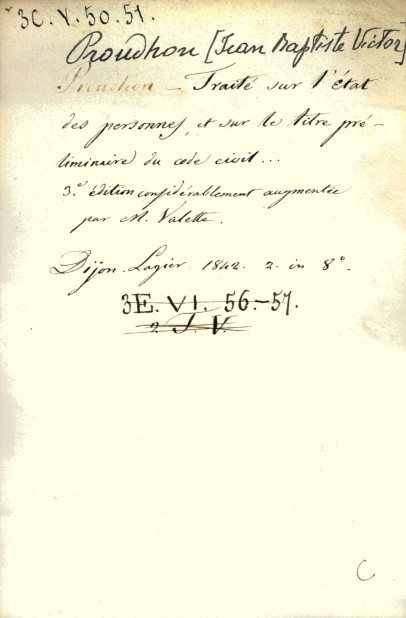 3C.V.50.51.
Proudhon [Jean Baptiste Victor]
Proudhon - Traité sur l'état
des personnes, et sur le titre pré-
liminaire du code civil...
3.e édition considérablement augmentée
par M. Valette.
Dijon. Lagier. 1842. 2. in 8°.
3E. VI. 56.-57.
2 J. V.
C